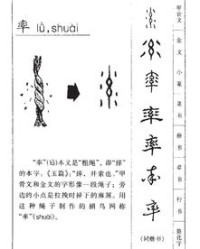 率 lǜ,shuài
“率”(lǜ)本义是“粗绳”,即“繂”
的本字。《玉篇》,“繂,井索也。”甲
骨文和金文的字形像一段绳子;旁
边的小点是拉拽时掉下的麻屑。用
这种绳子制作的捕鸟网称
“率”(shuài)。
甲骨文
金文
小篆
隶书
楷书
草书
行书
简化字
率
率
率
(同楷书)